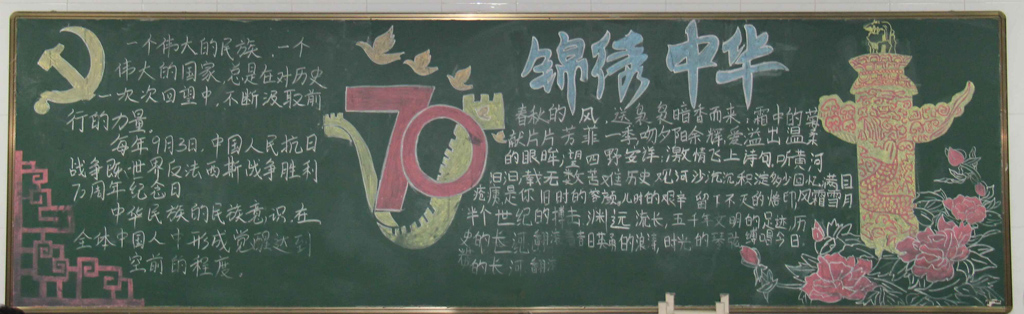 一个伟大的民族,一个
伟大的国家,总是在对历史
一次次回望中,不断汲取前
行的力量。
每年9月3日,中国人民抗日
战争既世界反法西斯战争胜利
70周年纪念日
中华民族的民族意识,在
全体中国人中形成觉醒达到
空前的程度。
70
锦绣中华
春秋的风,送袅袅暗香而来,霜中的菊
献片片芳菲一季吻夕阳余辉爱溢出温柔
的眼眸,望四野安洋,激情飞上诗句,听黄河
汩汩载无数苦难历史,似河沙沉沉积淀多少回忆,满目
疮痍是你旧时的容颜,儿时的艰辛留下不灭的烙印,风霜雪月
半个世纪的搏击,渊远流长,五千年文明的足迹,历
史的长河翻滚昔日号角的浪涛,时光的
的长河翻滚